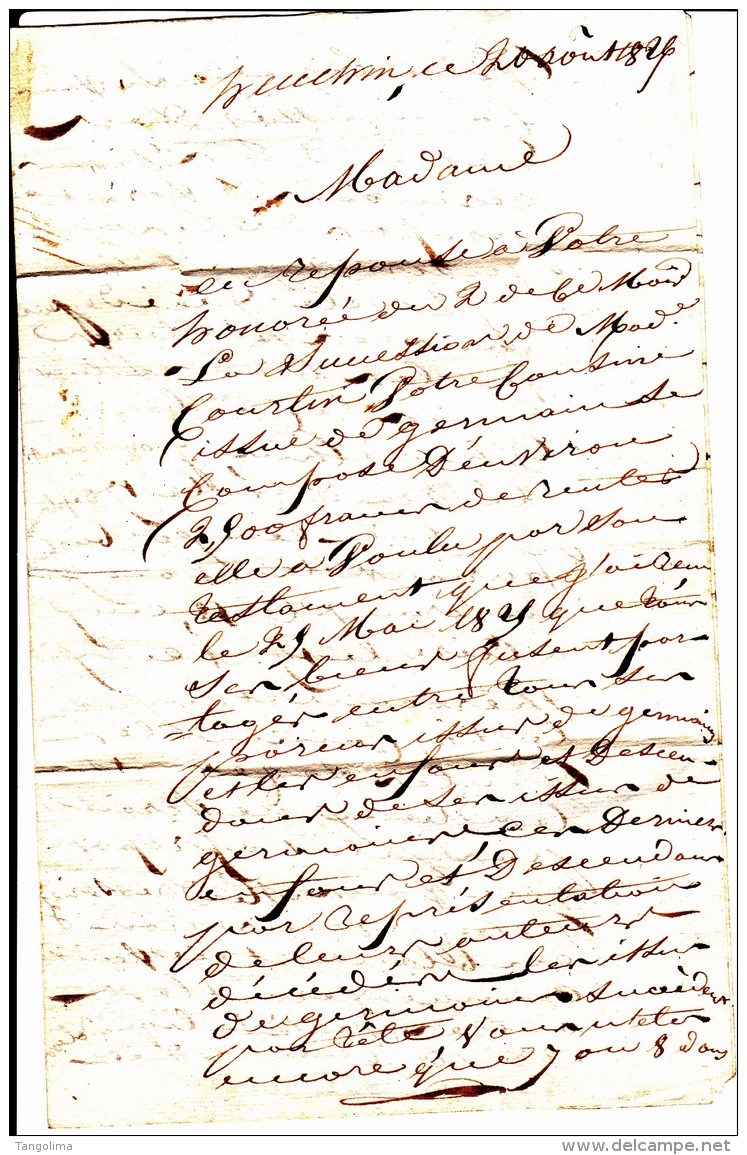 ce 2 août 1826
Madame
en reponse à Votre
honorée du 2 de Ce Mois
La Succession de Mad.e
Courtin Votre Cousine
issue de germain Se
Compose D'environ
2,900 francs de rentes
elle a Voulu par son
testament que j'ai reçu
le 29 Mai 1825 que tous
ses biens fusent par-
tagés entre tous ses
parens issus de germains
et les enfans et Descen-
dans de ses issus de
germains, ces Derniers
enfans et Descendans
par représentation
de leurs auteurs
décédés. les issus
de germains succèdent
par tête. Vous n'etes
encore que 7 ou 8 dans
Tangolima
delcampe.net